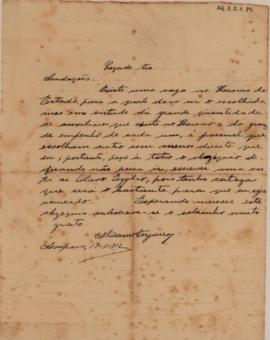 Prezado tio
Saudações.
Existe uma vaga no Thesouro do
Estado, para a qual devo ser o escolhido,
mas em virtude da grande quantidade
de auxiliares que existe no Thesouro e do grao
de empenho de cada um, é possivel que
escolham outro com menos direito que
eu; portanto, peço á
quando não possa ir, escrever uma car
ta ao Olavo Egydio, pois tenho certeza
que será o bastante para que eu seja
nomeado. Esperando merecer este
obsequio subscreve-se o sobrinho muito
grato